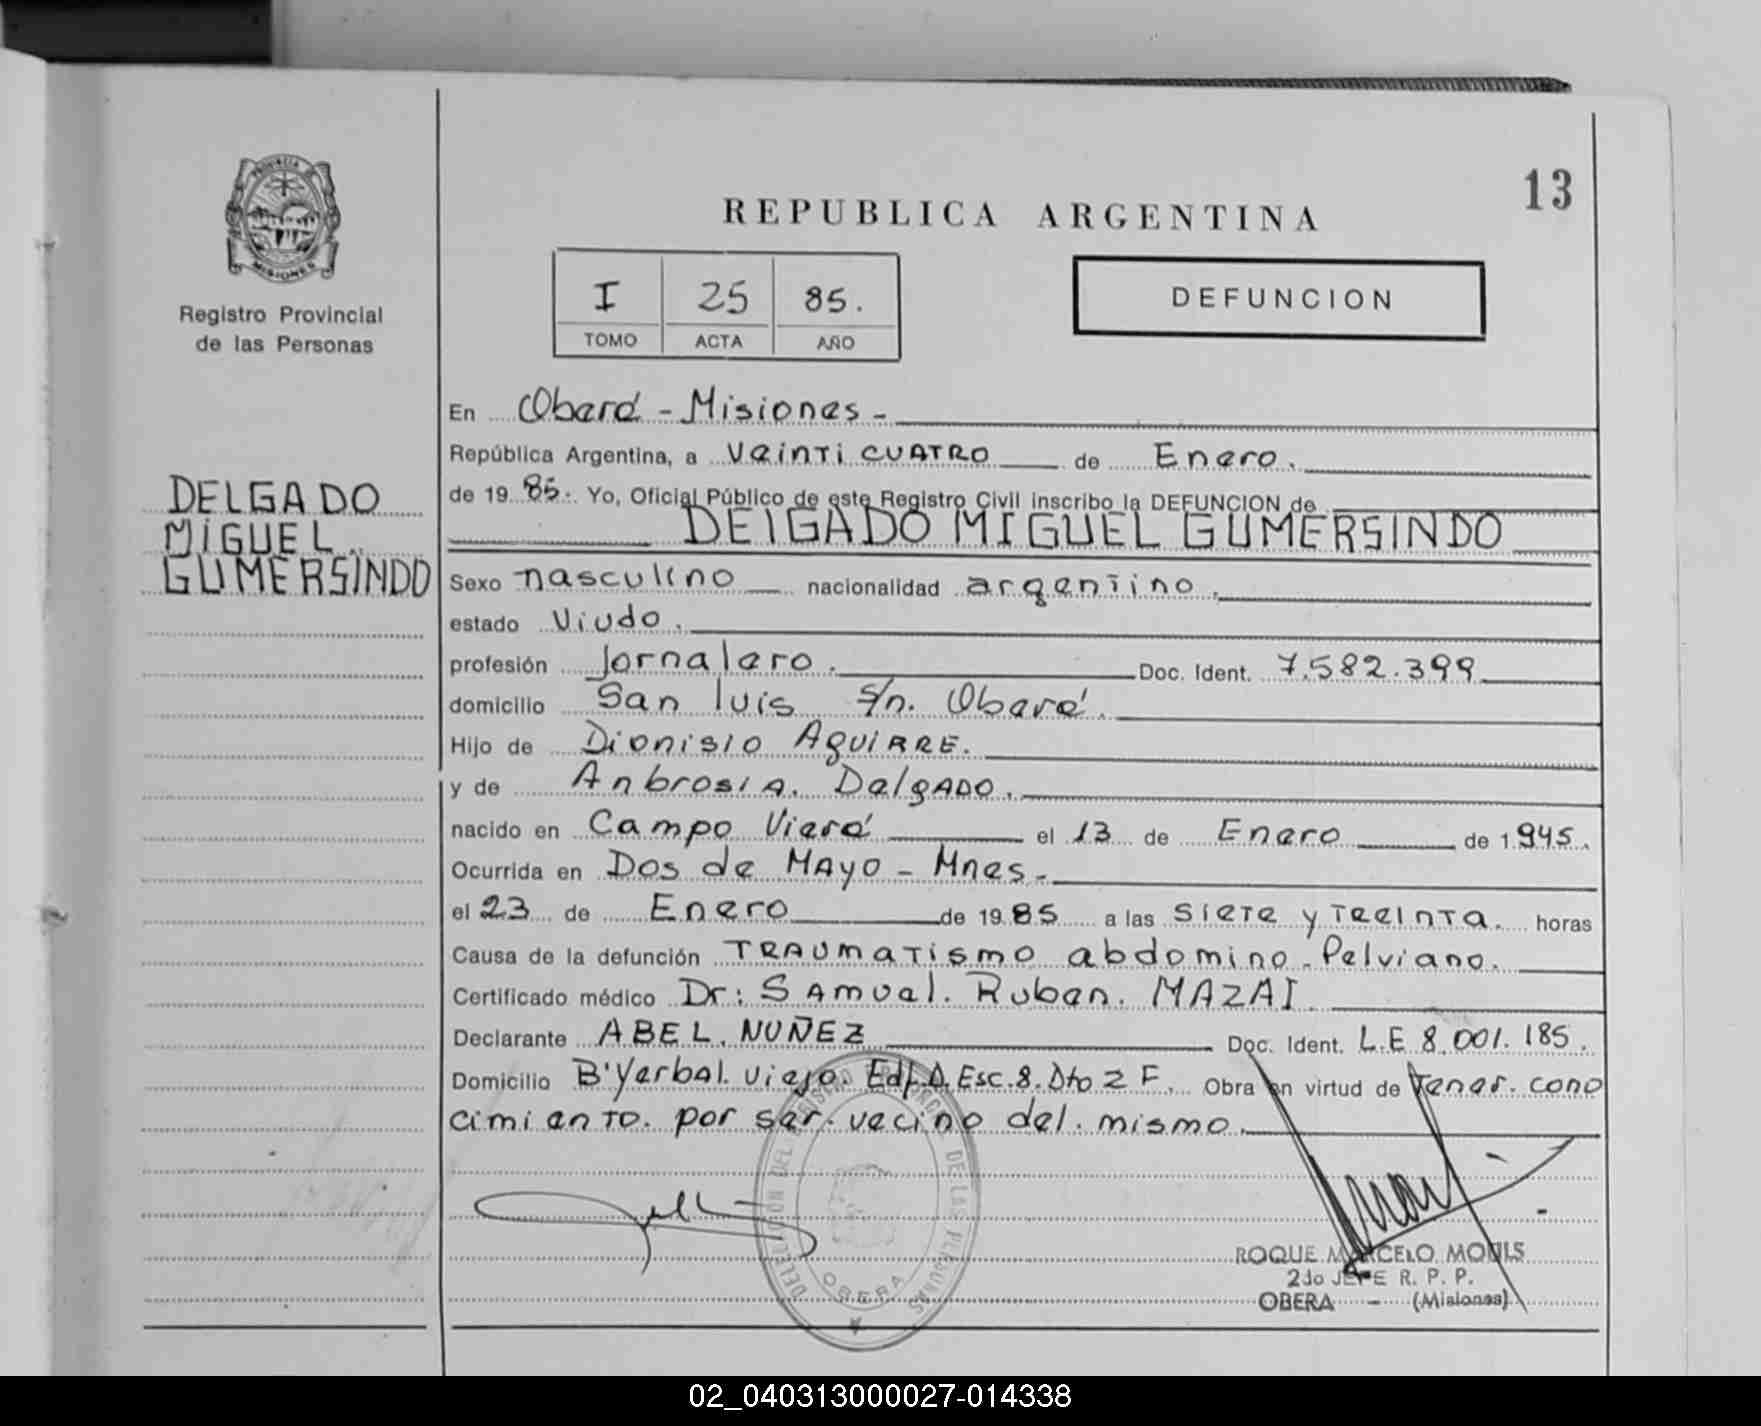 PROVINCIA DE
MISIONES
Registro Provincial
de las Personas
DELGADO
MIGUEL
GUMERSINDO
13
REPUBLICA ARGENTINA
I 25 85.
TOMO ACTA AÑO
DEFUNCION
En Oberá - Misiones -
República Argentina, a veinticuatro de Enero.
de 19 85. Yo, Oficial Público de este Registro Civil inscribo la DEFUNCION de
DELGADO MIGUEL GUMERSINDO
Sexo masculino nacionalidad argentino.
estado Viudo.
profesión Jornalero. Doc. Ident. 7.582.399
domicilio San luis s/n. Oberá.
Hijo de Dionisio AguiRRE.
y de Anbrosia. DelgADO.
nacido en Campo Vierá el 13 de Enero de 1.945.
Ocurrida en Dos de MAyo - Mnes.
el 23 de Enero de 19 85 a las siete y treinta. horas
Causa de la defunción TRAumatismo abdomino-Pelviano.
Certificado médico Dr: SAmuel. Ruben. MAZAI
Declarante ABEL. NUÑEZ Doc. Ident. L.E 8.001.185.
Domicilio B'Yerbal. viejo. Edf.D.Esc.8.Dto 2 F. Obra en virtud de tener. cono
cimiento. por ser. vecino del. mismo.
DELEGACION DEL REGISTRO PROVINCIAL DE LAS PERSONAS
OBERA
ROQUE MARCELO MOULS
2do JEFE R. P. P.
OBERA - (Misiones)
02_040313000027-014338